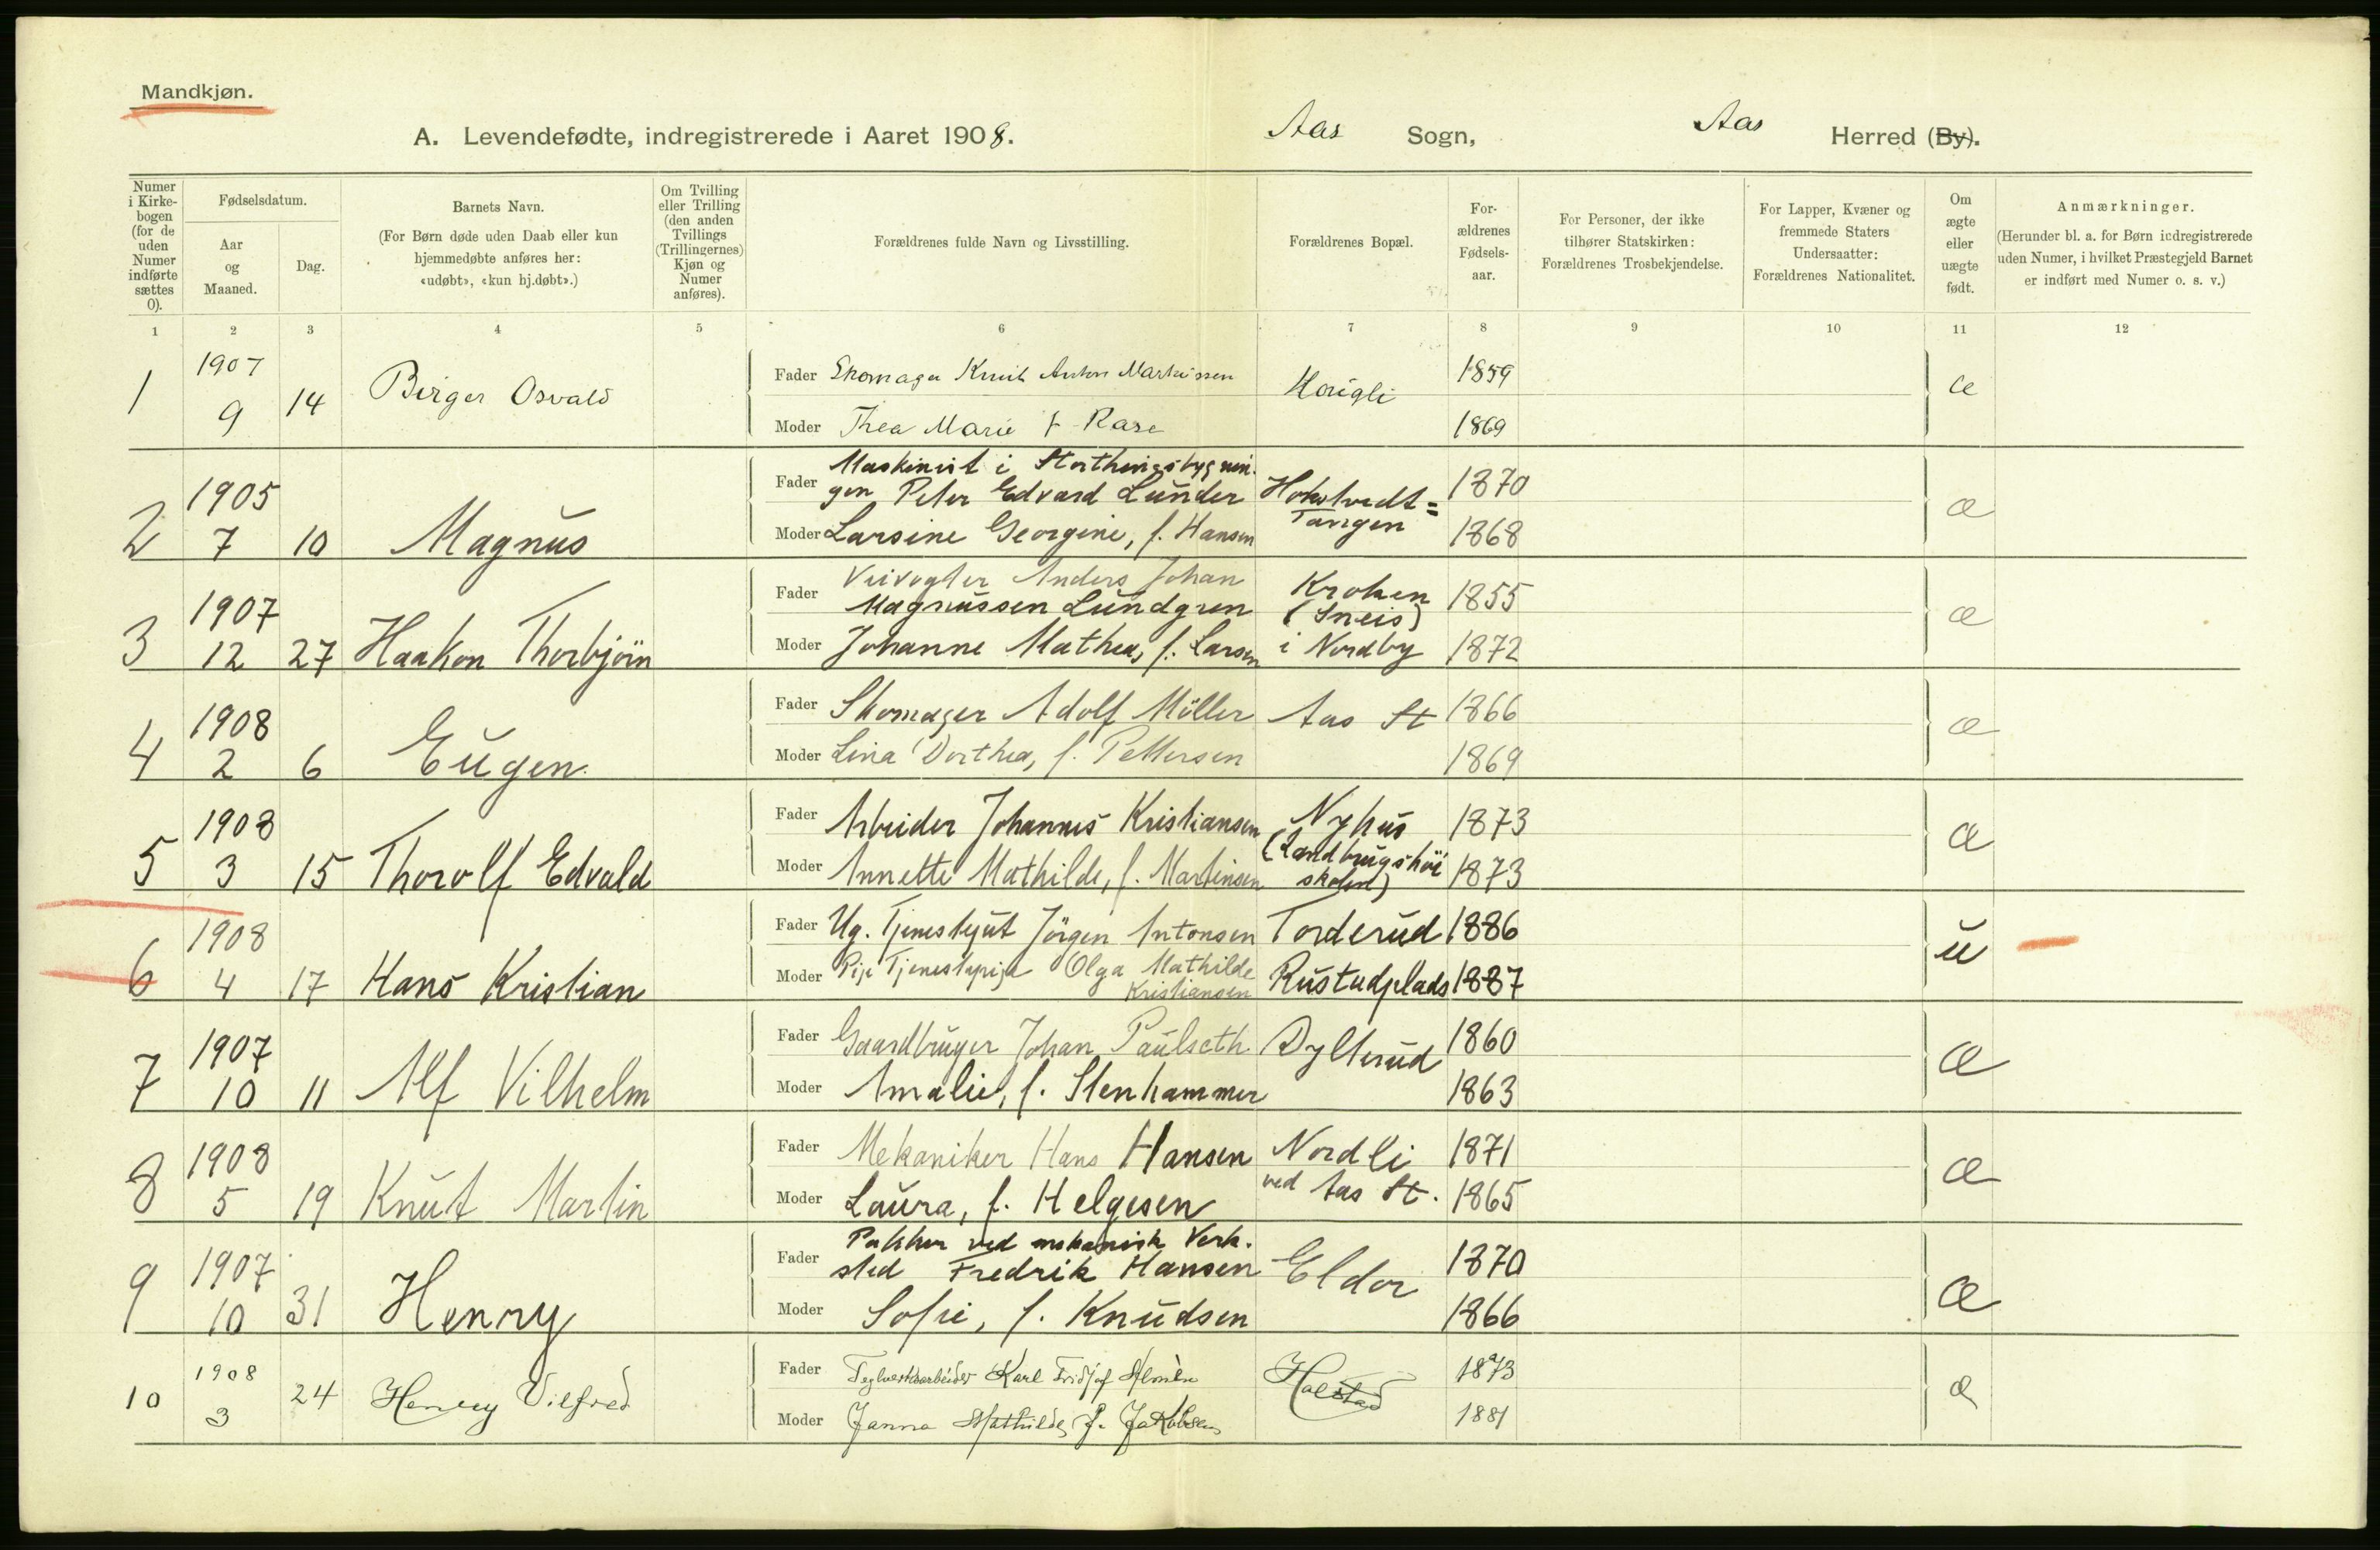 Mandkjøn.
A. Levendefødte, indregistrerede i Aaret 1908. Aas Sogn, Aas Herred (By).
Numer i Kirkebogen (for de uden Numer indførte sættes 0).
Fødselsdatum.
Aar og Maaned.
Dag.
Barnets Navn.
(For Børn døde uden Daab eller kun hjemmedøbte anføres her: «udøbt», «kun hj.døbt».)
Om Tvilling eller Trilling (den anden Tvillings (Trillingernes) Kjøn og Numer anføres).
Forældrenes fulde Navn og Livsstilling.
Forældrenes Bopæl.
Forældrenes Fødselsaar.
For Personer, der ikke tilhører Statskirken: Forældrenes Trosbekjendelse.
For Lapper, Kvæner og fremmede Staters Undersaatter: Forældrenes Nationalitet.
Om ægte eller uægte født.
Anmærkninger.
(Herunder bl. a. for Børn indregistrerede uden Numer, i hvilket Præstegjeld Barnet er indført med Numer o. s. v.)
1 2 3 4 5 6 7 8 9 10 11 12
1 1907 9 14 Birger Osvald
Fader Skomager Knut Anton 1859 æ
Moder Thea Marie f. Rase 1869
2 1905 7 10 Magnus
Fader Maskinist i Storthingsbygnin-
gen Peter Edvard Lunder 1870 æ
Moder Larsine Georgine, f. Hansen Tangen 1868
3 1907 12 27 Haakon Thorbjörn
Fader Veivogter Anders Johan Kroken 1855 æ
Magnussen Lundgren (Sneis)
Moder Johanne Mathea, f. Larsen i Nordby 1872
4 1908 2 6 Eugen
Fader Skomager Adolf Müller Aas St 1866 æ
Moder Lina Dorthea, f. Pettersen 1869
5 1908 3 15 Thorolf Edvald
Fader Arbeider Johannes Kristiansen Nyhus 1873 æ
Moder Annette Mathilde, f. Martinsen (Landbrugshöi
skolen) 1873
6 1908 4 17 Hans Kristian
Fader Ug. Tjenestgut Jörgen Antonsen Torderud 1886 u
Moder Pige Tjenestepige Olga Mathilde
Kristiansen Rustadplads 1887
7 1907 10 11 Alf Vilhelm
Fader Gaardbruger Johan Paulseth Dylterud 1860 æ
Moder Amalie, f. Stenhammer 1863
8 1908 5 19 Knut Martin
Fader Mekaniker Hans Hansen Nordli 1871 æ
Moder Laura, f. Helgesen ved Aas St. 1865
9 1907 10 31 Henry
Fader Pakker ved mekanisk Verk-
sted Fredrik Hansen Eldor 1870 æ
Moder Sofie, f. Knudsen 1866
10 1908 3 24 Henry Vilfred
Fader Teglverksarbeider Karl Fridtjof Holstad 1873 æ
Moder Janna Mathilde f. Jakobsen 1881